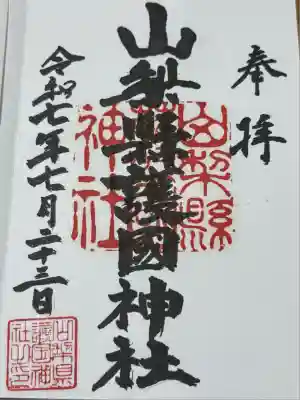 奉拝
山梨縣護國神社
山梨縣護國神社
令和七年七月二十三日
山梨県護国神社之印